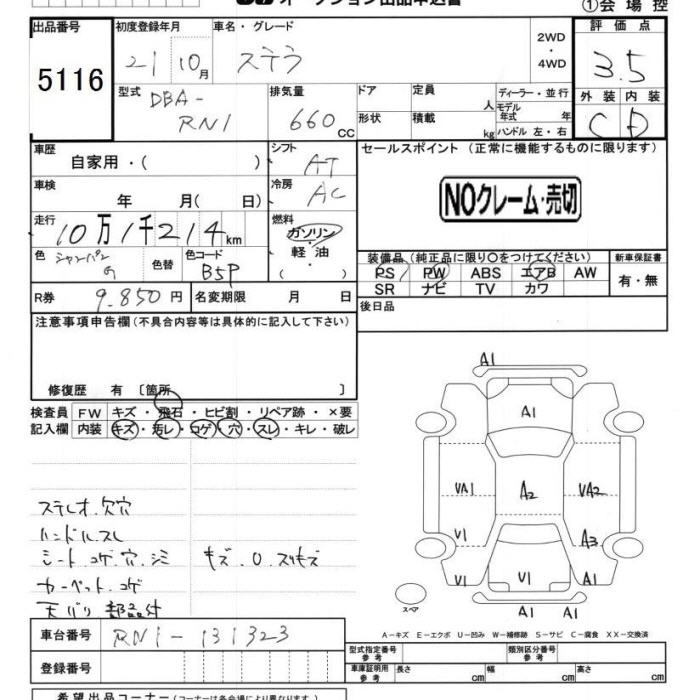 ①会 場 控
出品番号 初度登録年月 車名・グレード 2WD・4WD 評 価 点
5116 21 10月 ステラ 3.5
型式 DBA-RN1 排気量 660 CC ドア 定員 人 ディーラー・並行 外 装 内 装
形状 積載 kg モデル年式 年 ハンドル 左・右 C D
車歴 自家用・( ) シフト AT セールスポイント (正常に機能するものに限ります)
車検 年 月( 日) 冷房 AC NOクレーム・売切
走行 10万1千214km 燃料 ガソリン・軽 油
色 シャンパンG 色替 色コード B5P 装備品(純正品に限り〇をつけてください) 新車保証書
PS PW ABS エアB AW 有・無
SR ナビ TV カワ
R券 9.850円 名変期限 月 日 後日品
注意事項申告欄(不具合内容等は具体的に記入して下さい)
修復歴 有 〔箇所 〕
検査員 FW キズ・飛石・ヒビ割・リペア跡・×要
記入欄 内装 キズ・汚レ・コゲ・穴・スレ・キレ・破レ
ステレオ.欠穴
ハンドル.スレ
シート.コゲ.穴.シミ
カーペット.コゲ
天バリ
A1
A1
VA1 A2 VA2
V1 A3
V1 V1 A1
A1 A1
スペア
A-キズ E-エクボ U-凹み W-補修跡 S-サビ C-腐食 XX-交換済
車台番号 RN1-131323
登録番号
型式指定番号 参考 類別区分番号 参考
車庫証明用 参考 長さ cm 幅 cm 高さ cm
希望出品コーナー(コーナーは各会場により異なります)